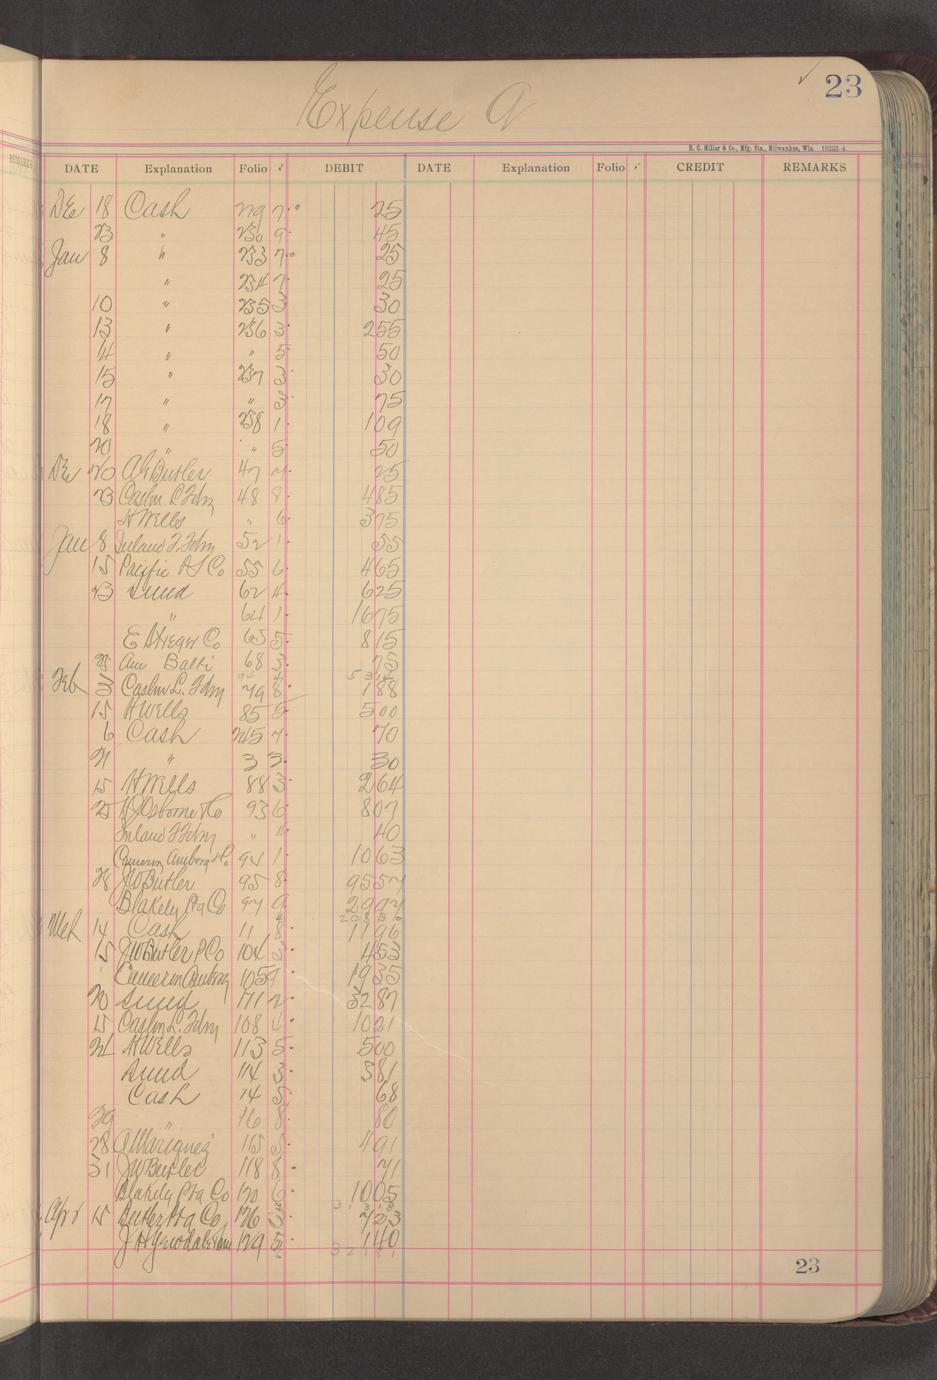 Expense a
23
H. C. Miller & Co., Mfg. Sta., Milwaukee, Wis.
DATE Explanation Folio ✓ DEBIT DATE Explanation Folio ✓ CREDIT REMARKS
DE 18 Cash 229 7 25
23 " 230 9 45
Jan 8 " 233 7 25
" 234 7 25
10 " 235 3 30
13 " 236 3 255
14 " " 5 50
15 " 237 3 30
17 " " 3 75
18 " 238 1 109
20 " " 5 50
DE 20 Butler 47 25
23 Caslon L Fdry 48 8 485
H Wells " 6 375
Jan 8 Inland T. Fdry 52 1 55
15 Pacific P S Co 55 6 465
23 Sund 62 4 625
" 64 1 1675
E Co 65 5 815
Am Balti 68 3 75
Feb 3 Caslon L. Fdry 79 8 188
15 H Wells 85 5 500
6 Cash 245 7 70
21 " 3 3 30
15 H Wells 88 3 264
25 Osborne & Co 93 6 807
Inland T Fdry " 4 40
Cameron Amberg & Co 94 1 1063
28 J W Butler 95 8 9557
Blakely Ptg Co 97 9 2997
Mch 14 Cash 11 8 1196
15 J W Butler P Co 104 3 453
Cameron Amberg 105 9 1935
20 Sund 2 3287
15 Caslon L. Fdry 108 4 1021
24 H Wells 113 5 500
Sund 114 3 381
Cash 14 5 68
29 " 16 8 80
28 A Marignez 115 5 491
31 J W Butler 118 8 71
Blakely Ptg Co 120 6 1005
Apr 15 Butler Ptg Co 126 723
129 5 140
23